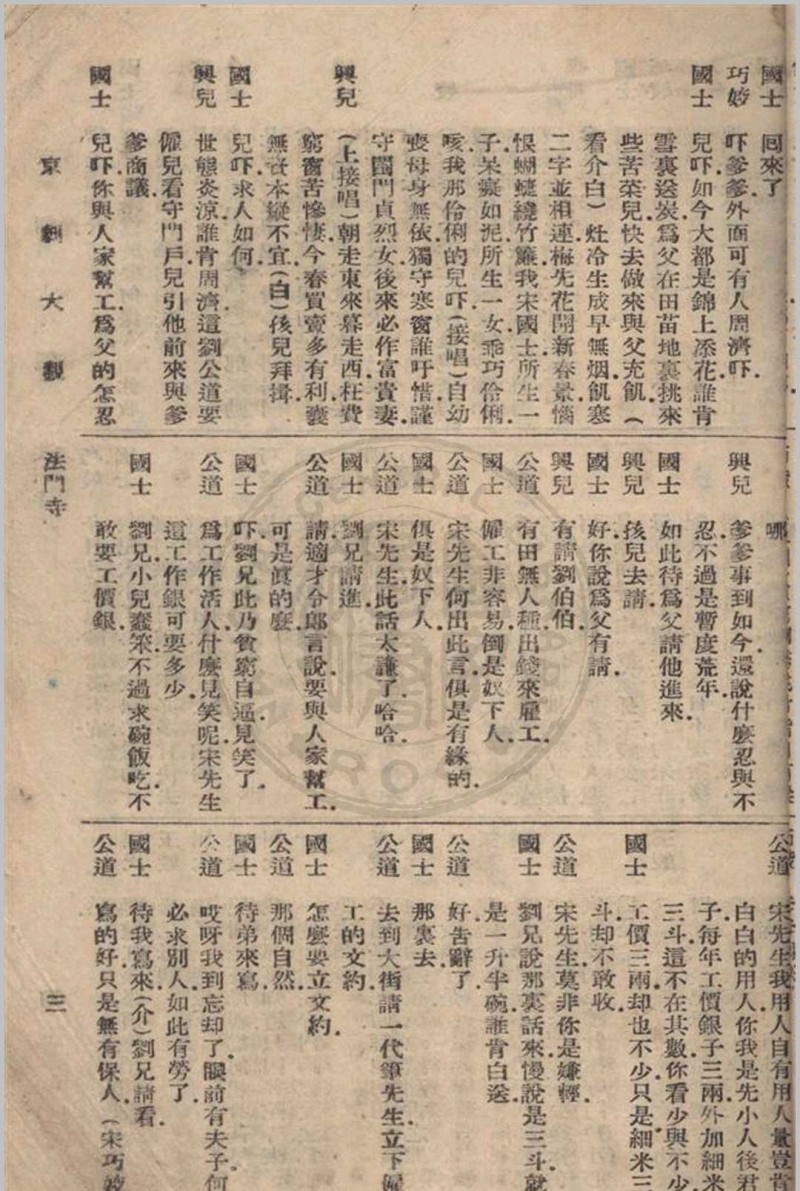 國士 回來了
巧姣 吓爹爹外面可有人周濟吓
國士 兒吓如今大都是錦上添花誰肯
雪裏送炭爲父在田苗地裏挑來
些苦菜兒快去做來與父充飢（
看介白）灶冷生成早無烟飢寒
二字並相連梅先花開新春景惱
恨蝴蝶繞竹簾我宋國士所生一
子呆癡如泥所生一女乖巧伶俐
咳我那伶俐的兒吓（接唱）自幼
喪母身無依獨守寒窗誰吁惜謹
守閨門貞烈女後來必作富貴妻
興兒 （上接唱）朝走東來暮走西枉費
窮窗苦慘悽今春買賣多有利囊
無資本縱不宜（白）孩兒拜揖
國士 兒吓求人如何
興兒 世態炎涼誰肯周濟這劉公道要
僱兒看守門戶兒引他前來與爹
爹商議
國士 兒吓你與人家幫工爲父的怎忍
京劇大觀
哪
興兒 爹爹事到如今還說什麼忍與不
忍不過是暫度荒年
國士 如此待爲父請他進來
興兒 孩兒去請
國士 好你說爲父有請
興兒 有請劉伯伯
公道 有田無人種出錢來雇工
國士 僱工非容易倒是奴下人
公道 宋先生何出此言俱是有緣的
國士 俱是奴下人
公道 宋先生此話太謙了哈哈
國士 劉兄請進
公道 請適才令郎言說要與人家幫工
可是眞的麼
國士 吓劉兄此乃貧窮自逼見笑了
公道 爲工作活人什麼見笑呢宋先生
這工作銀可要多少
國士 劉兄小兒蠢笨不過求碗飯吃不
敢要工價銀
法門寺
公道 宋先生我用人自有用人量豈肯
白白的用人你我是先小人後君
子每年工價銀子三兩外加細米
三斗這不在其數你看少與不少
國士 工價三兩却也不少只是細米三
斗却不敢收
公道 宋先生莫非你是嫌輕
國士 劉兄說那裏話來慢說是三斗就
是一升半碗誰肯白送
公道 好告辭了
國士 那裏去
公道 去到大街請一代筆先生立下僱
工的文約
國士 怎麼要立文約
公道 那個自然
國士 待弟來寫
公道 哎呀我到忘却了眼前有夫子何
必求別人如此有勞了
國士 待我寫來（介）劉兄請看
公道 寫的好只是無有保人（宋巧姣
三